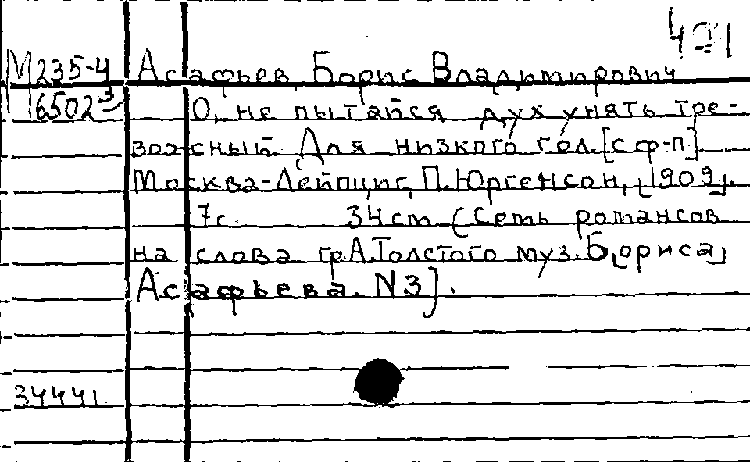 491
М235-4 Асафьев, Борис Владимирович
6502³ О, не пытайся дух унять тре-
вожный. Для низкого гол. [с ф-п]
Москва-Лейпциг, П. Юргенсон, [1909].
7с. 34см (Семь романсов
на слова гр. А. Толстого муз. Б[ориса]
Ас[афьева. N3].
34441